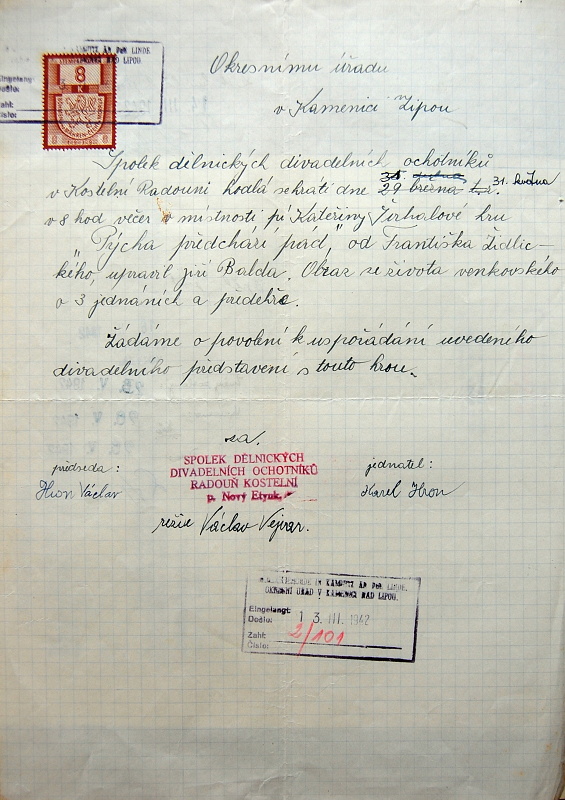 Okresnímu úřadu
v Kamenici n Lipou
8
K
8 8
Eingelangt
Došlo:
Zahl:
Číslo:
Spolek dělnických divadelních ochotníků
v Kostelní Radouni hodlá sehráti dne 29 března t.r. 31. května
v 8 hod večer v místnosti pí Kateřiny Jirhalové hru
„Pýcha předchází pád," od Františka Židlic-
kého, upravil Jiří Balda. Obraz ze života venkovského
o 3 jednáních a předehře.
Žádáme o povolení k uspořádání uvedeného
divadelního představení s touto hrou.
za.
SPOLEK DĚLNICKÝCH
DIVADELNÍCH OCHOTNÍKŮ
RADOUŇ KOSTELNÍ
p. Nový Etynk.
předseda:
Hron Václav
jednatel:
Karel Hron
režie Václav Vejvar.
IN KAMNITZ AN DER LINDE.
OKRESNÍ ÚŘAD V KAMENICI NAD LIPOU.
Eingelangt
Došlo: 13. III. 1942
Zahl: 2/101
Číslo: